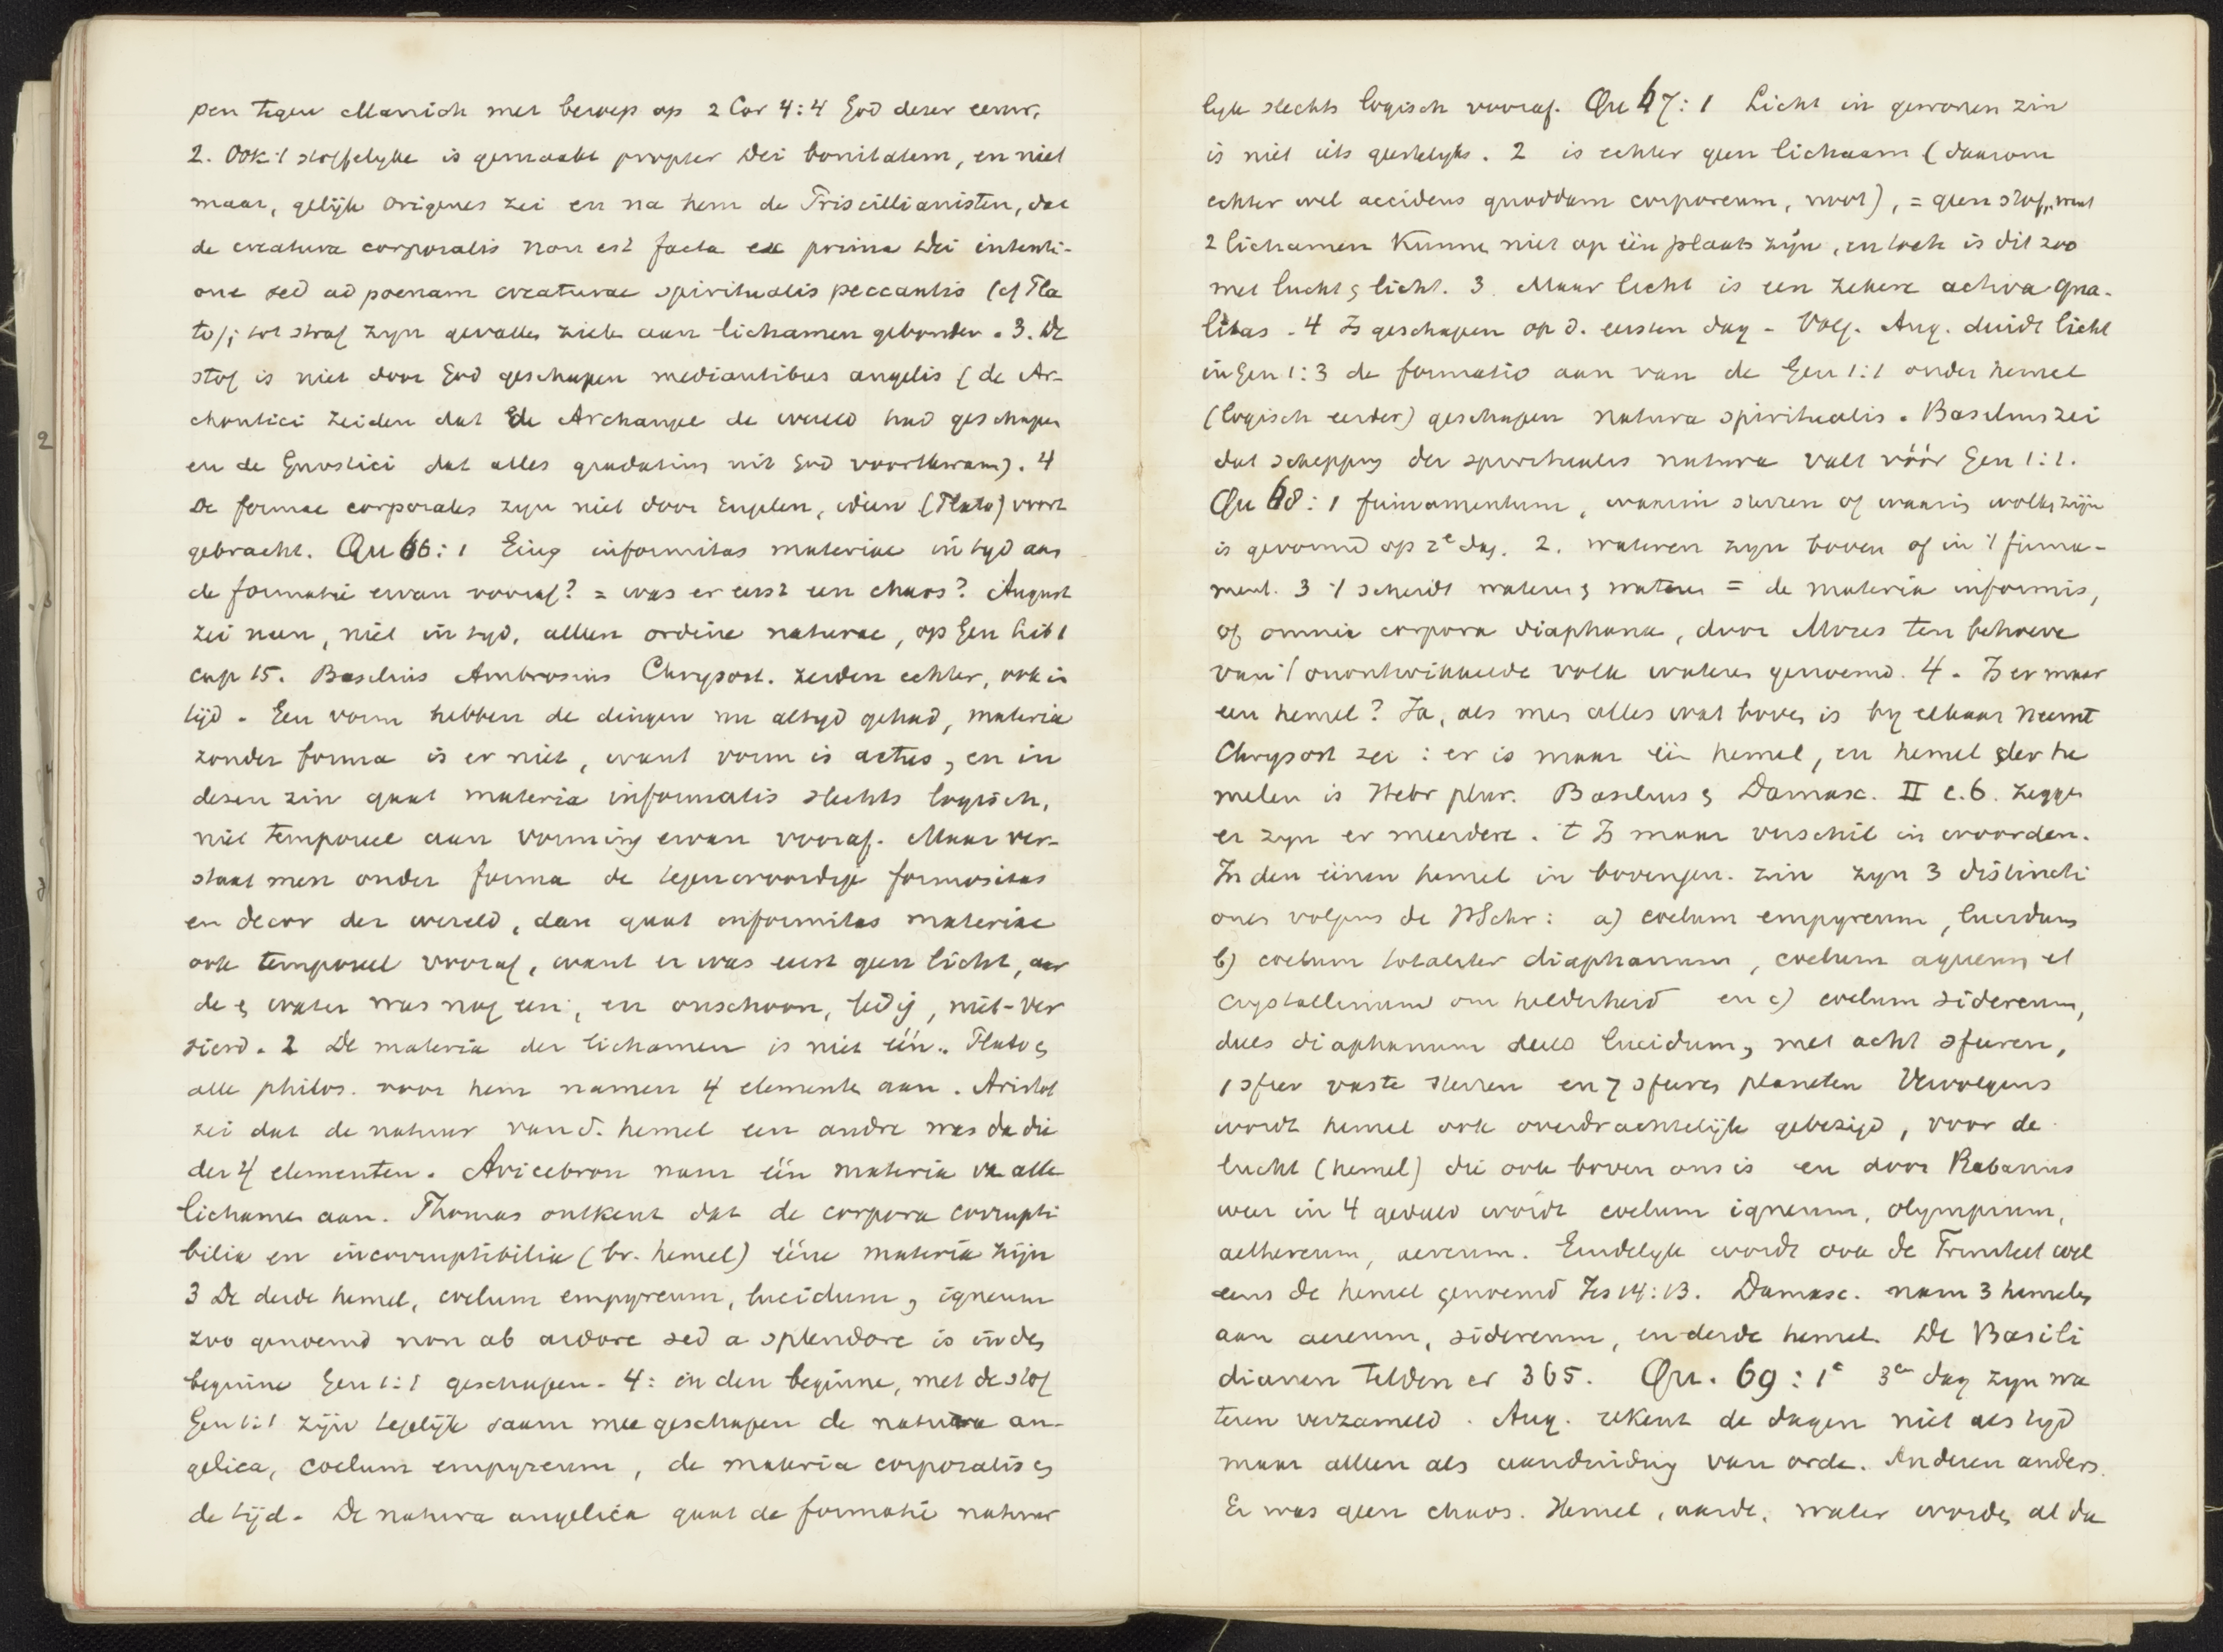 pen tegen Manich met beroep op 2 Cor 4:4 God dezer eeuw.
2. Ook 't stoffelyke is gemaakt propter Dei bonitatem, en niet
maar, gelijk Origenes zei en na hem de Priscillianisten, dat
de creatura corporalis non est facta ex prima Dei intenti-
one sed ad poenam creaturae spiritualis peccantis (cf Pla
to); tot straf zyn gevallen zielen aan lichamen gebonden. 3. De
stof is niet door God geschapen mediantibus angelis (de Ar-
chontici zeiden dat de Archangel de wereld had geschapen
en de Gnostici dat alles gradatim uit God voortkwam). 4
De formae corporales zyn niet door Engelen, ideen (Plato) voort
gebracht. Qu 66:1 Ging informitas materiae in tyd aan
de formatie ervan vooraf? = was er eerst een chaos? August
zei neen, niet in tyd, alleen ordine naturae, op Gen lib 1
cap 15. Basilius Ambrosius Chrysost. zeiden echter, ook in
tijd. Een vorm hebben de dingen nu altyd gehad, materia
zonder forma is er niet, want vorm is actus, en in
dezen zin gaat materia informatis slechts logisch,
niet temporeel aan vorming ervan vooraf. Maar ver-
staat men onder forma de tegenwoordige formositas
en decor der wereld, dan gaat informitas materiae
ook temporeel vooraf, want er was eerst geen licht, aar
de & water was nog een, en onschoon, ledig, niet-ver
sierd. 2 De materia der lichamen is niet één. Plato &
alle philos. voor hem namen 4 elementen aan. Aristot
zei dat de natuur van d. hemel een andre was dan die
der 4 elementen. Avicebron nam één materia van alle
lichamen aan. Thomas ontkent dat de corpora corrupti
bilia en incorruptibilia (bv. hemel) ééne materia zijn
3 De derde hemel, coelum empyreum, lucidum, igneum
zoo genoemd non ab ardore sed a splendore is in den
beginne Gen 1:1 geschapen. 4: in den beginne, met de stof
Gen 1:1 zijn tegelijk saam mee geschapen de natura an-
gelica, coelum empyreum, de materia corporalis &
de tijd. De natura angelica gaat de formatie natuur
lyk slechts logisch vooraf. Qu 67:1 Licht in gewonen zin
is niet iets geestelyks. 2 is echter geen lichaam (daarom
echter wel accidens quoddam corporeum, noot), = geen stof, want
2 lichamen kunnen niet op één plaats zijn, en toch is dit zoo
met lucht & licht. 3. Maar licht is een zekere activa qua-
litas. 4 Is geschapen op d. eersten dag. Volg. Aug. duidt licht
in Gen 1:3 de formatio aan van de Gen 1:1 onder hemel
(logisch eerder) geschapen natura spiritualis. Basilius zei
dat schepping der spirituales natura valt vóór Gen 1:1.
Qu 68:1 firmamentum, waarin sterren of waarin wolken zijn
is gevormd op 2e dag. 2. wateren zyn boven of in 't firma-
ment. 3 't scheidt wateren & wateren = de materia informis,
of omnia corpora diaphana, door Mozes ten behoeve
van 't onontwikkelde volk wateren genoemd. 4. Is er maar
een hemel? Ja, als men alles wat boven is by elkaar neemt
Chrysost zei: er is maar één hemel, en hemel der he
melen is Hebr plur. Basilius & Damasc. II c.6. zeggen
er zyn er meerdere. 't Is maar verschil in woorden.
In den éénen hemel in bovengen. zin zyn 3 distincti
ones volgens de HSchr: a) coelum empyreum, lucidum
b) coelum totaliter diaphanum, coelum aqueum et
crystallinum om helderheid en c) coelum sidereum,
deels diaphanum deels lucidum, met acht sferen,
1 sfeer vaste sterren en 7 sferen planeten Vervolgens
wordt hemel ook overdrachtelijk gebezigd, voor de
lucht (hemel) die ook boven ons is en door Rabanus
weer in 4 gedeeld wordt coelum igneum, olympium,
aethereum, aereum. Eindelyk wordt ook de Triniteit wel
eens de hemel genoemd Jes 14:13. Damasc. nam 3 hemelen
aan aereum, sidereum, en derde hemel. De Basili
dianen telden er 365. Qu. 69:1e 3en dag zyn wa
teren verzameld. Aug. rekent de dagen niet als tyd
maar alleen als aanduiding van orde. Anderen anders.
Er was geen chaos. Hemel, aarde, water worden al da